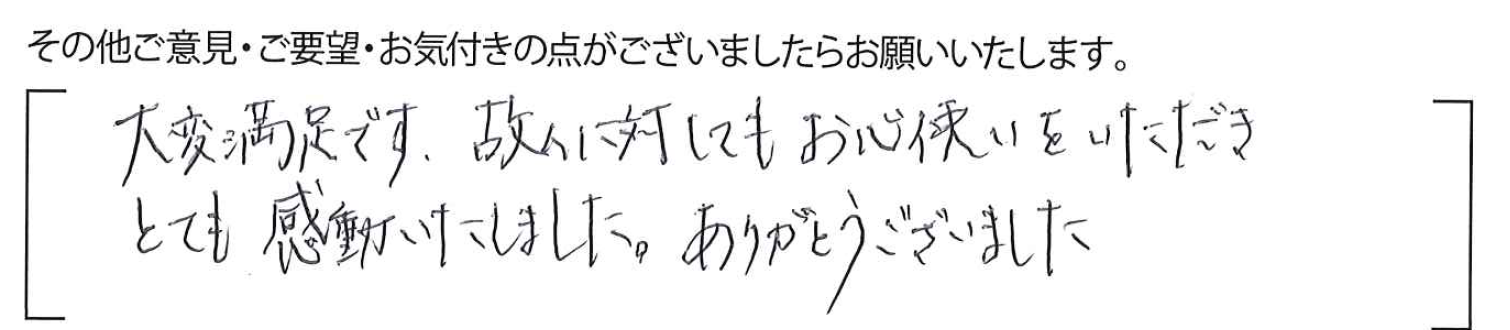 その他ご意見・ご要望・お気付きの点がございましたらお願いいたします。
大変満足です、故人に対してもお心使いをいただき
とても感動いたしました。ありがとうございました